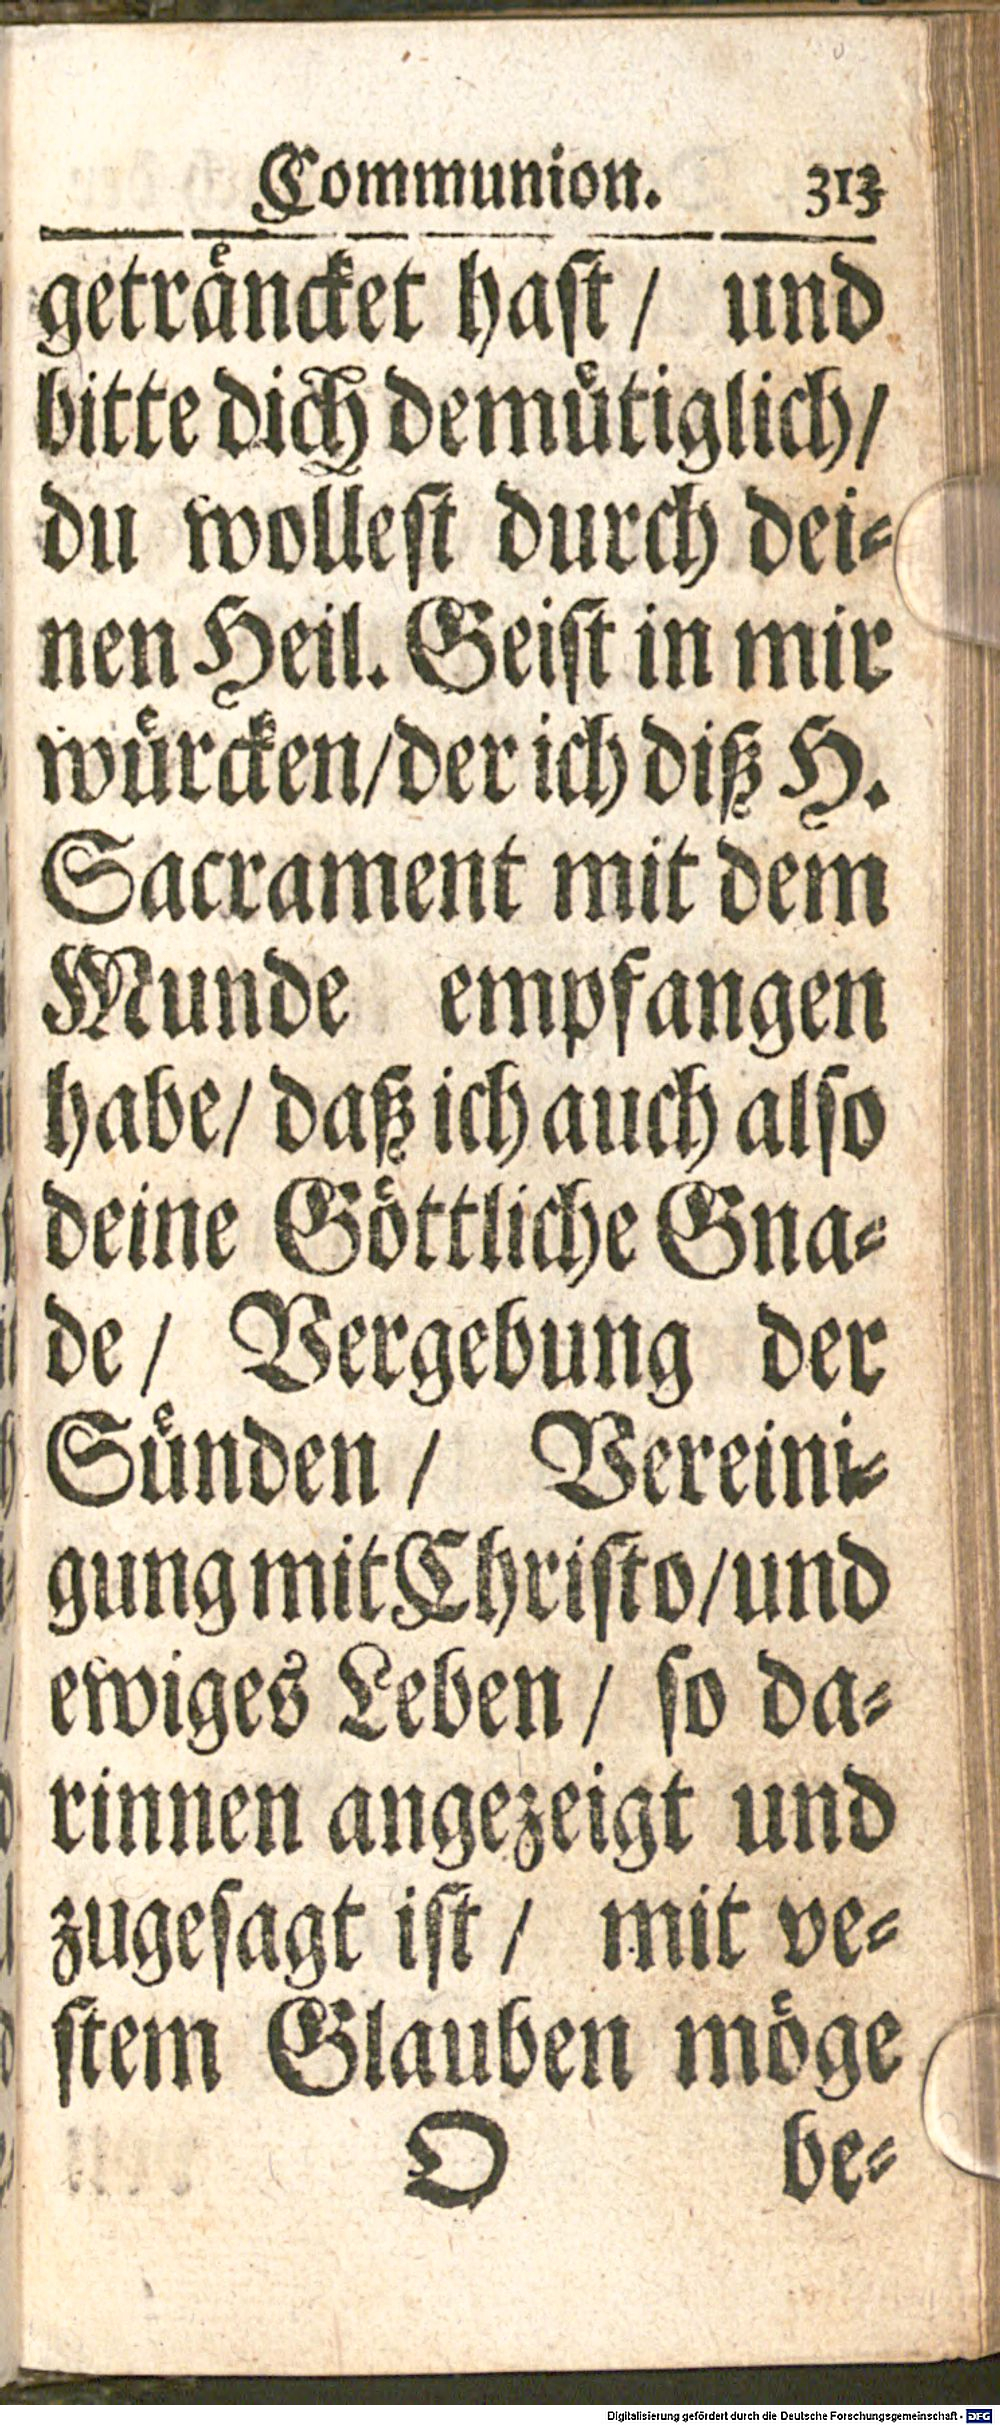 Communion. 313
geträncket haſt / und
bitte dich demuͤtiglich/
du wolleſt durch dei-
nen Heil. Geiſt in mir
wuͤrcken/der ich diß H.
Sacrament mit dem
Munde empfangen
habe/ daß ich auch alſo
deine Göttliche Gna-
de / Vergebung der
Suͤnden / Vereini-
gung mit Chriſto/und
ewiges Leben / ſo da-
rinnen angezeigt und
zugeſagt iſt / mit ve-
ſtem Glauben möge
O be-
Digitalisierung gefördert durch die Deutsche Forschungsgemeinschaft - DFG